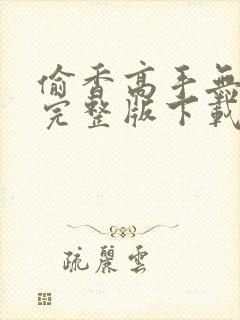 偷香高手無
完整版下載
疏麗雲